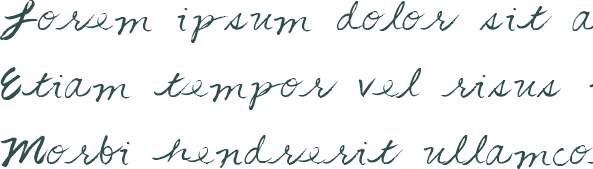 Lorem ipsum dolor sit a
Etiam tempor vel risus
Morbi hendrerit ullamco